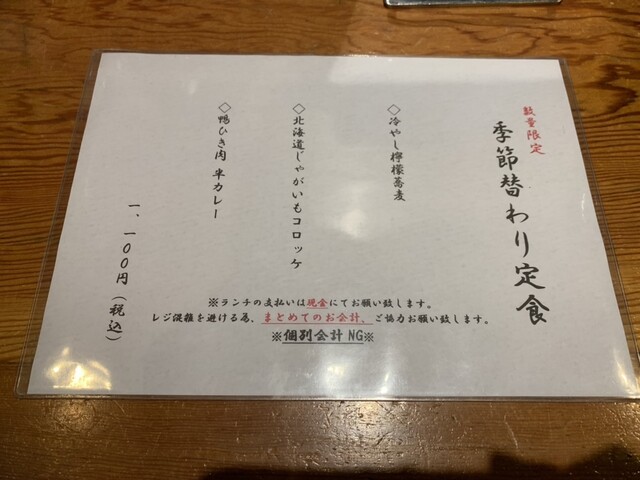 数量限定
季節替わり定食
◇冷やし檸檬蕎麦
◇北海道じゃがいもコロッケ
◇鴨ひき肉 半カレー
一、一〇〇円(税込)
※ランチの支払いは現金にてお願い致します。
レジ混雑を避ける為、まとめてのお会計、ご協力お願い致します。
※個別会計 NG※